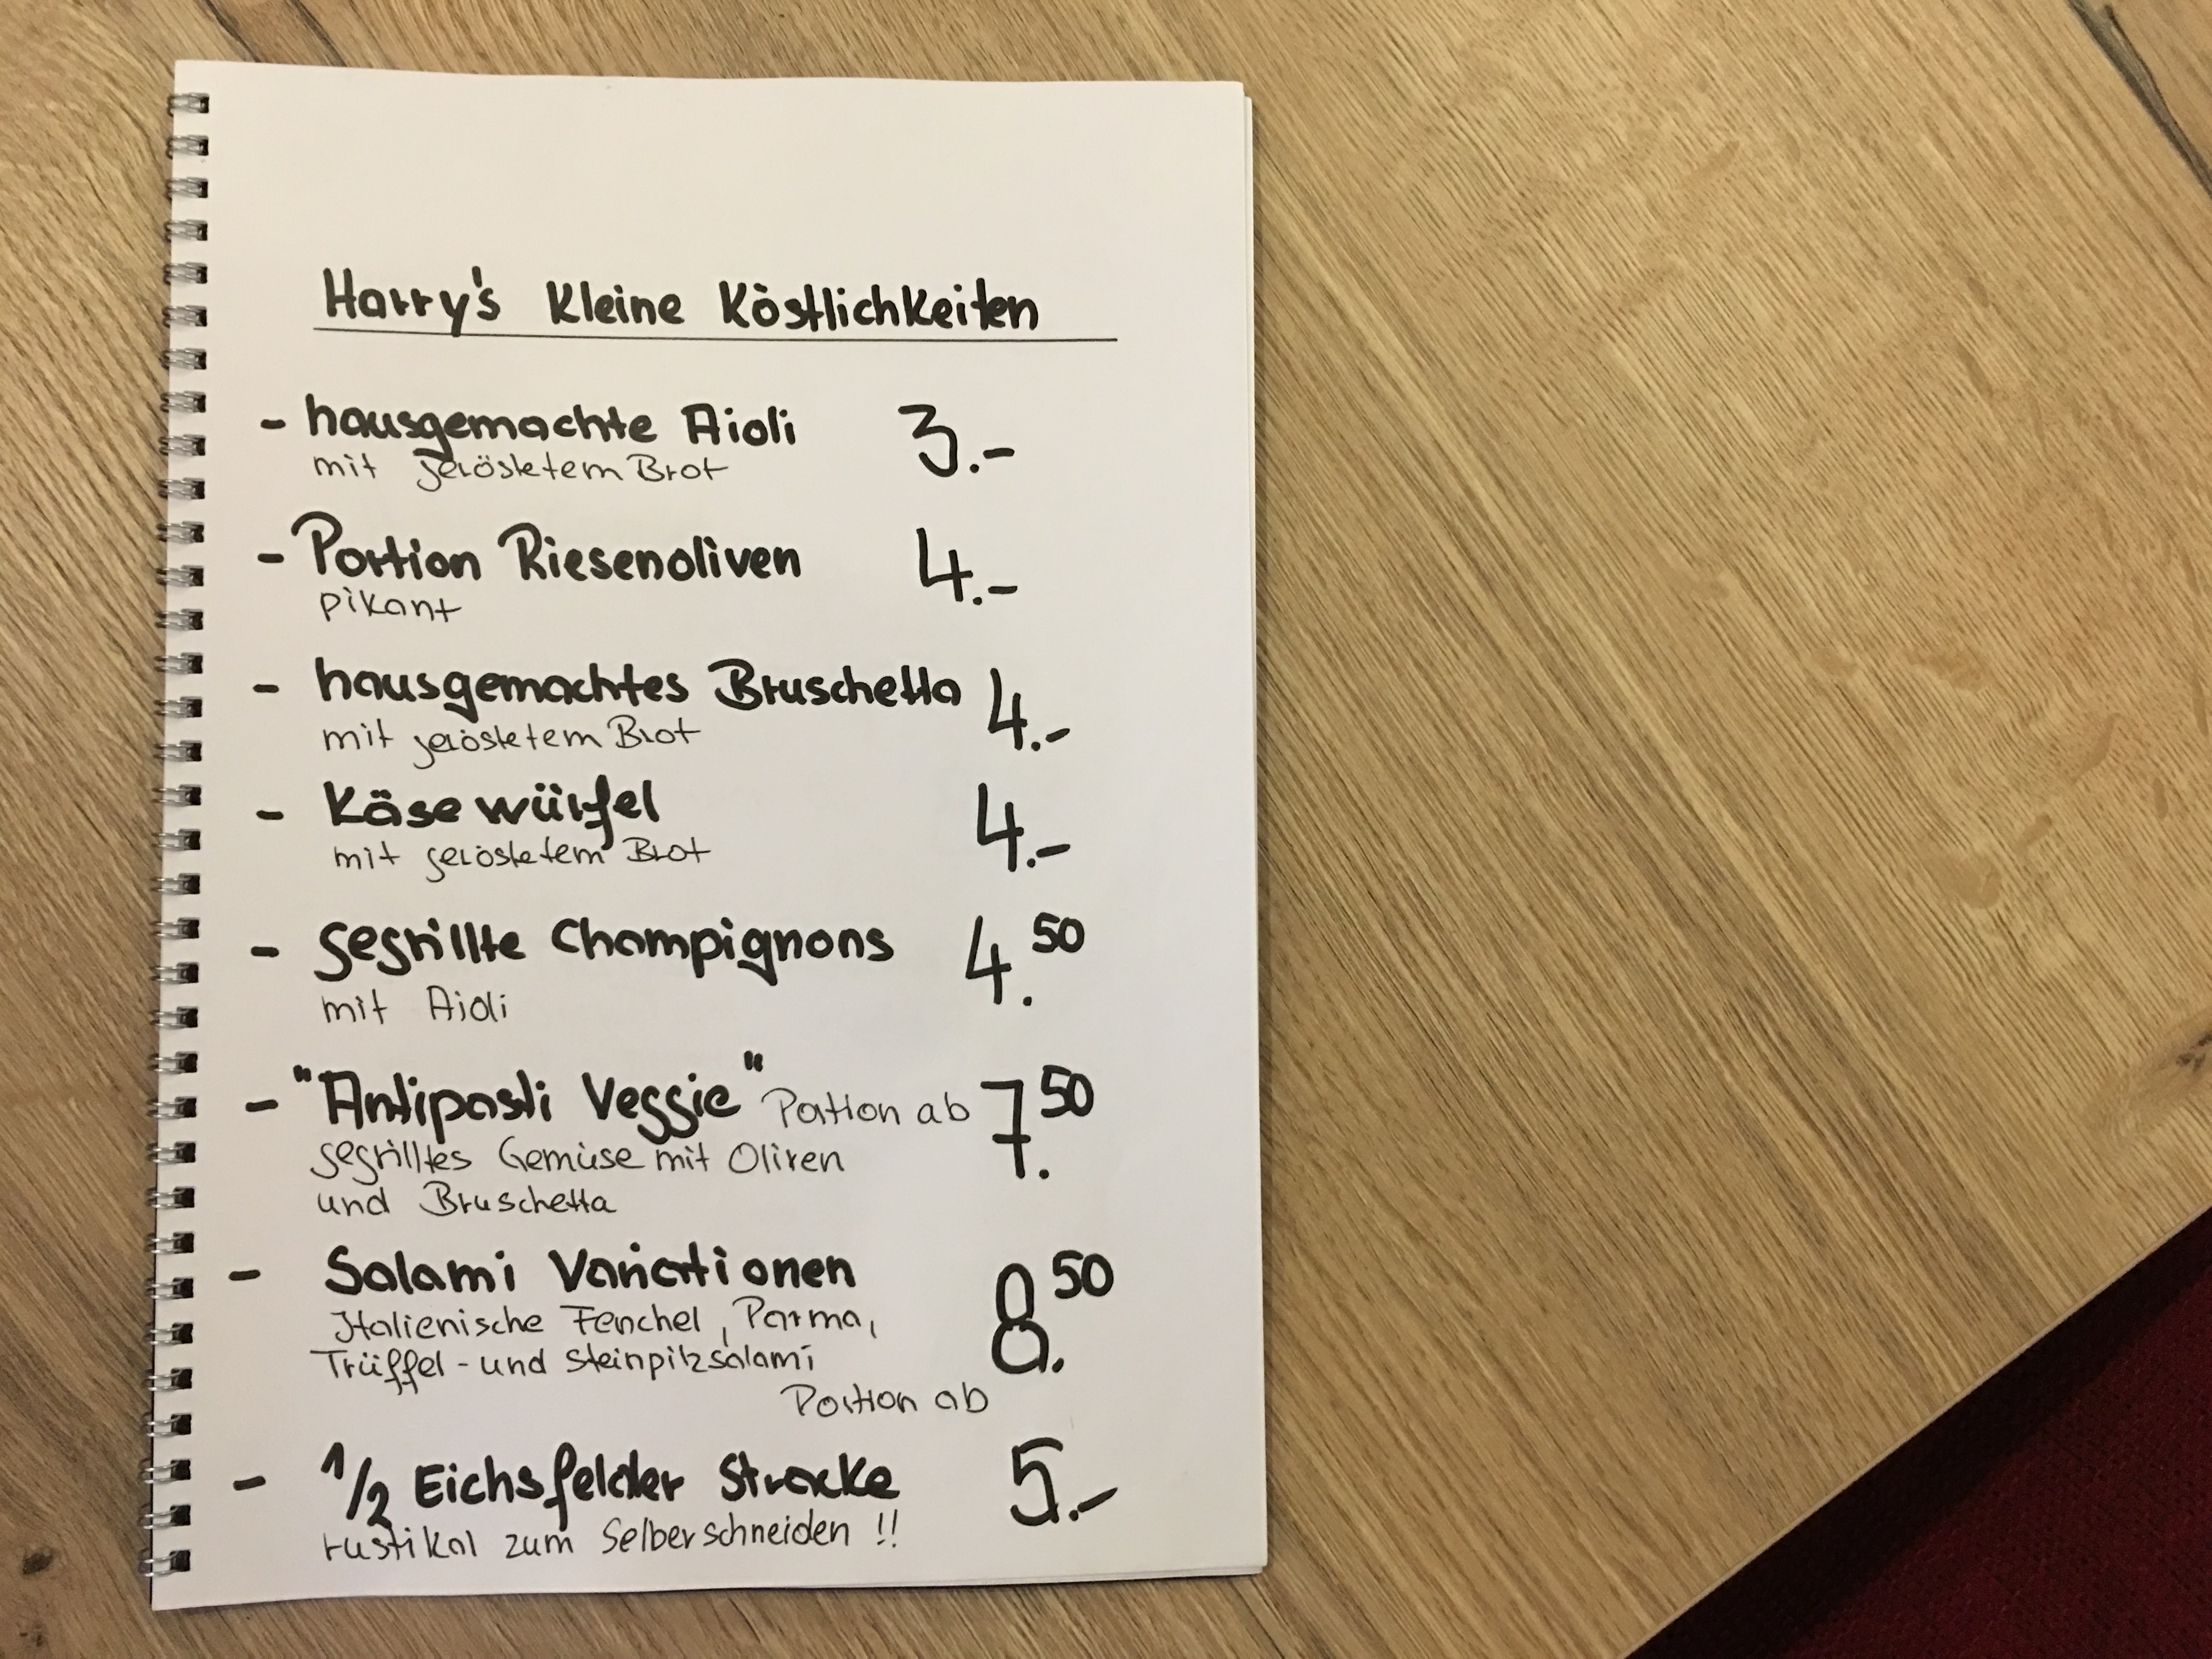 Harry's Kleine Köstlichkeiten
- hausgemachte Aioli 3.-
mit geröstetem Brot
- Portion Riesenoliven 4.-
pikant
- hausgemachtes Bruschetta 4.-
mit geröstetem Brot
- Käsewürfel 4.-
mit geröstetem Brot
- gegrillte Champignons 4.50
mit Aioli
- "Antipasti Veggie" Portion ab 7.50
gegrilltes Gemüse mit Oliven
und Bruschetta
- Salami Variationen 8.50
Italienische Fenchel, Parma,
Trüffel- und Steinpilzsalami
Portion ab
- 1/2 Eichsfelder Stracke 5.-
rustikal zum Selberschneiden !!